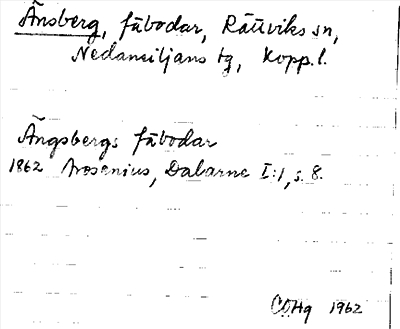 Ånsberg, fäbodar, Rättviks sn,
Nedansiljans tg, Kopp. l.
Ängsbergs fäbodar
1862 Arosenius, Dalarne I:1, s. 8.
COHg 1962